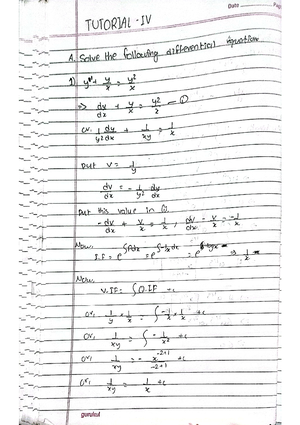 Date
Pag
TUTORIAL - IV
A. Solve the following differential equation
1) y' + y/x = y²/x
=> dy/dx + y/x = y²/x — ①
or, 1/y² dy/dx + 1/xy = 1/x
Put v = 1/y
dv/dx = - 1/y² dy/dx
Put this value in ①.
-dv/dx + v/x = 1/x, dv/dx - v/x = -1/x
Now,
I.F = e^∫Pdx = e^∫-1/x dx = e^-logx => 1/x
Now,
v.IF = ∫Q.IF +c
or, 1/y × 1/x = ∫ -1/x × 1/x +c
or, 1/xy = ∫ - 1/x² +c
or, 1/xy = - x^-2+1/-2+1 +c
or, 1/xy = 1/x +c
gurukul